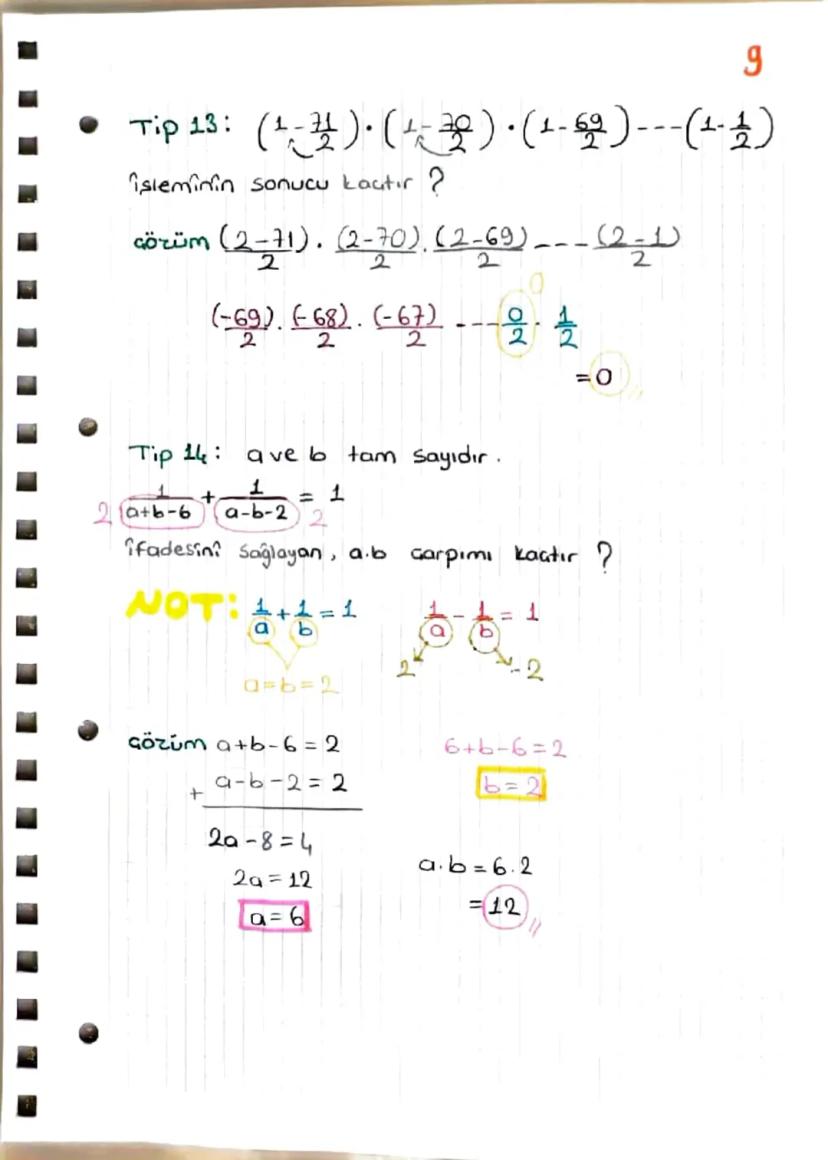 9
Tip 13: (1-71/2)·(1-70/2)·(1-69/2)---(1-1/2)
işleminin sonucu kaçtır ?
Çözüm (2-71)/2 . (2-70)/2 . (2-69)/2 --- (2-1)/2
0
(-69)/2 . (-68)/2 . (-67)/2 --- 0/2 · 1/2
=0
Tip 14: a ve b tam sayıdır.
2 1/(a+b-6) + 1/(a-b-2) = 1 2
ifadesini sağlayan, a.b çarpımı kaçtır ?
NOT: 1/a + 1/b = 1   1/a - 1/b = 1
2   -2
a=b=2
Çözüm a+b-6=2
+ a-b-2=2
2a-8=4
2a=12
a=6
6+b-6=2
b=2
a.b=6.2
=12